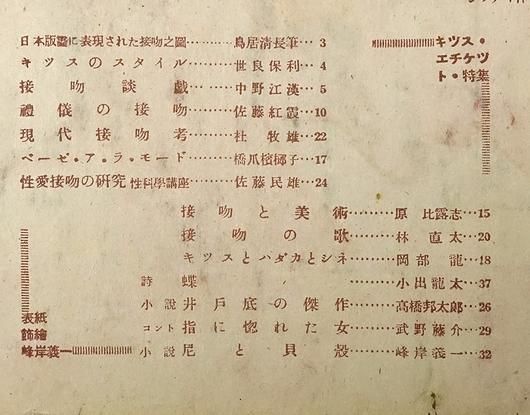 日本版畫に表現された接吻之圖………鳥居淸長筆…3
キツスのスタイル………世良保利…4
接吻談戯………中野江漢…5
禮儀の接吻………佐藤紅霞…10
現代接吻考………杜牧雄…22
ベーゼ・ア・ラ・モード………橋爪檳榔子…17
性愛接吻の研究 性科學講座………佐藤民雄…24
キツス・
エチケツ
ト・特集
接吻と美術………原比露志…15
接吻の歌………林直太…20
キツスとハダカとシネ………岡部龍…18
詩 蝶………小出龍太…37
小説 井戸底の傑作………高橋邦太郎…26
コント 指に惚れた女………武野藤介…29
小説 尼と貝殼………峰岸義一…32
表紙
飾繪
峰岸義一